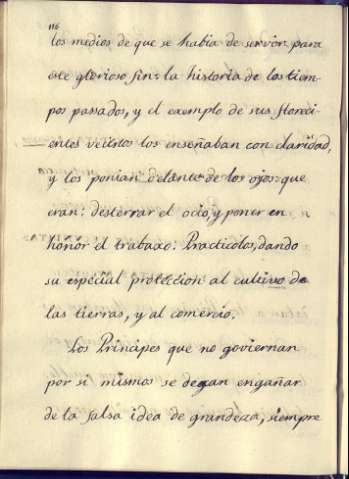 116
los medios de que se habia de servir para
este glorioso fin: la historia de los tiem-
pos passados, y el exemplo de sus floreci-
entes vecinos los enseñaban con claridad,
y los ponian delante de los ojos: que
eran: desterrar el ocio, y poner en
honor el trabaxo: Practicolos, dando
su especial proteccion al cultivo de
las tierras, y al comercio.
Los Principes que no goviernan
por si mismos se dexan engañar
de la falsa idea de grandeza, siempre